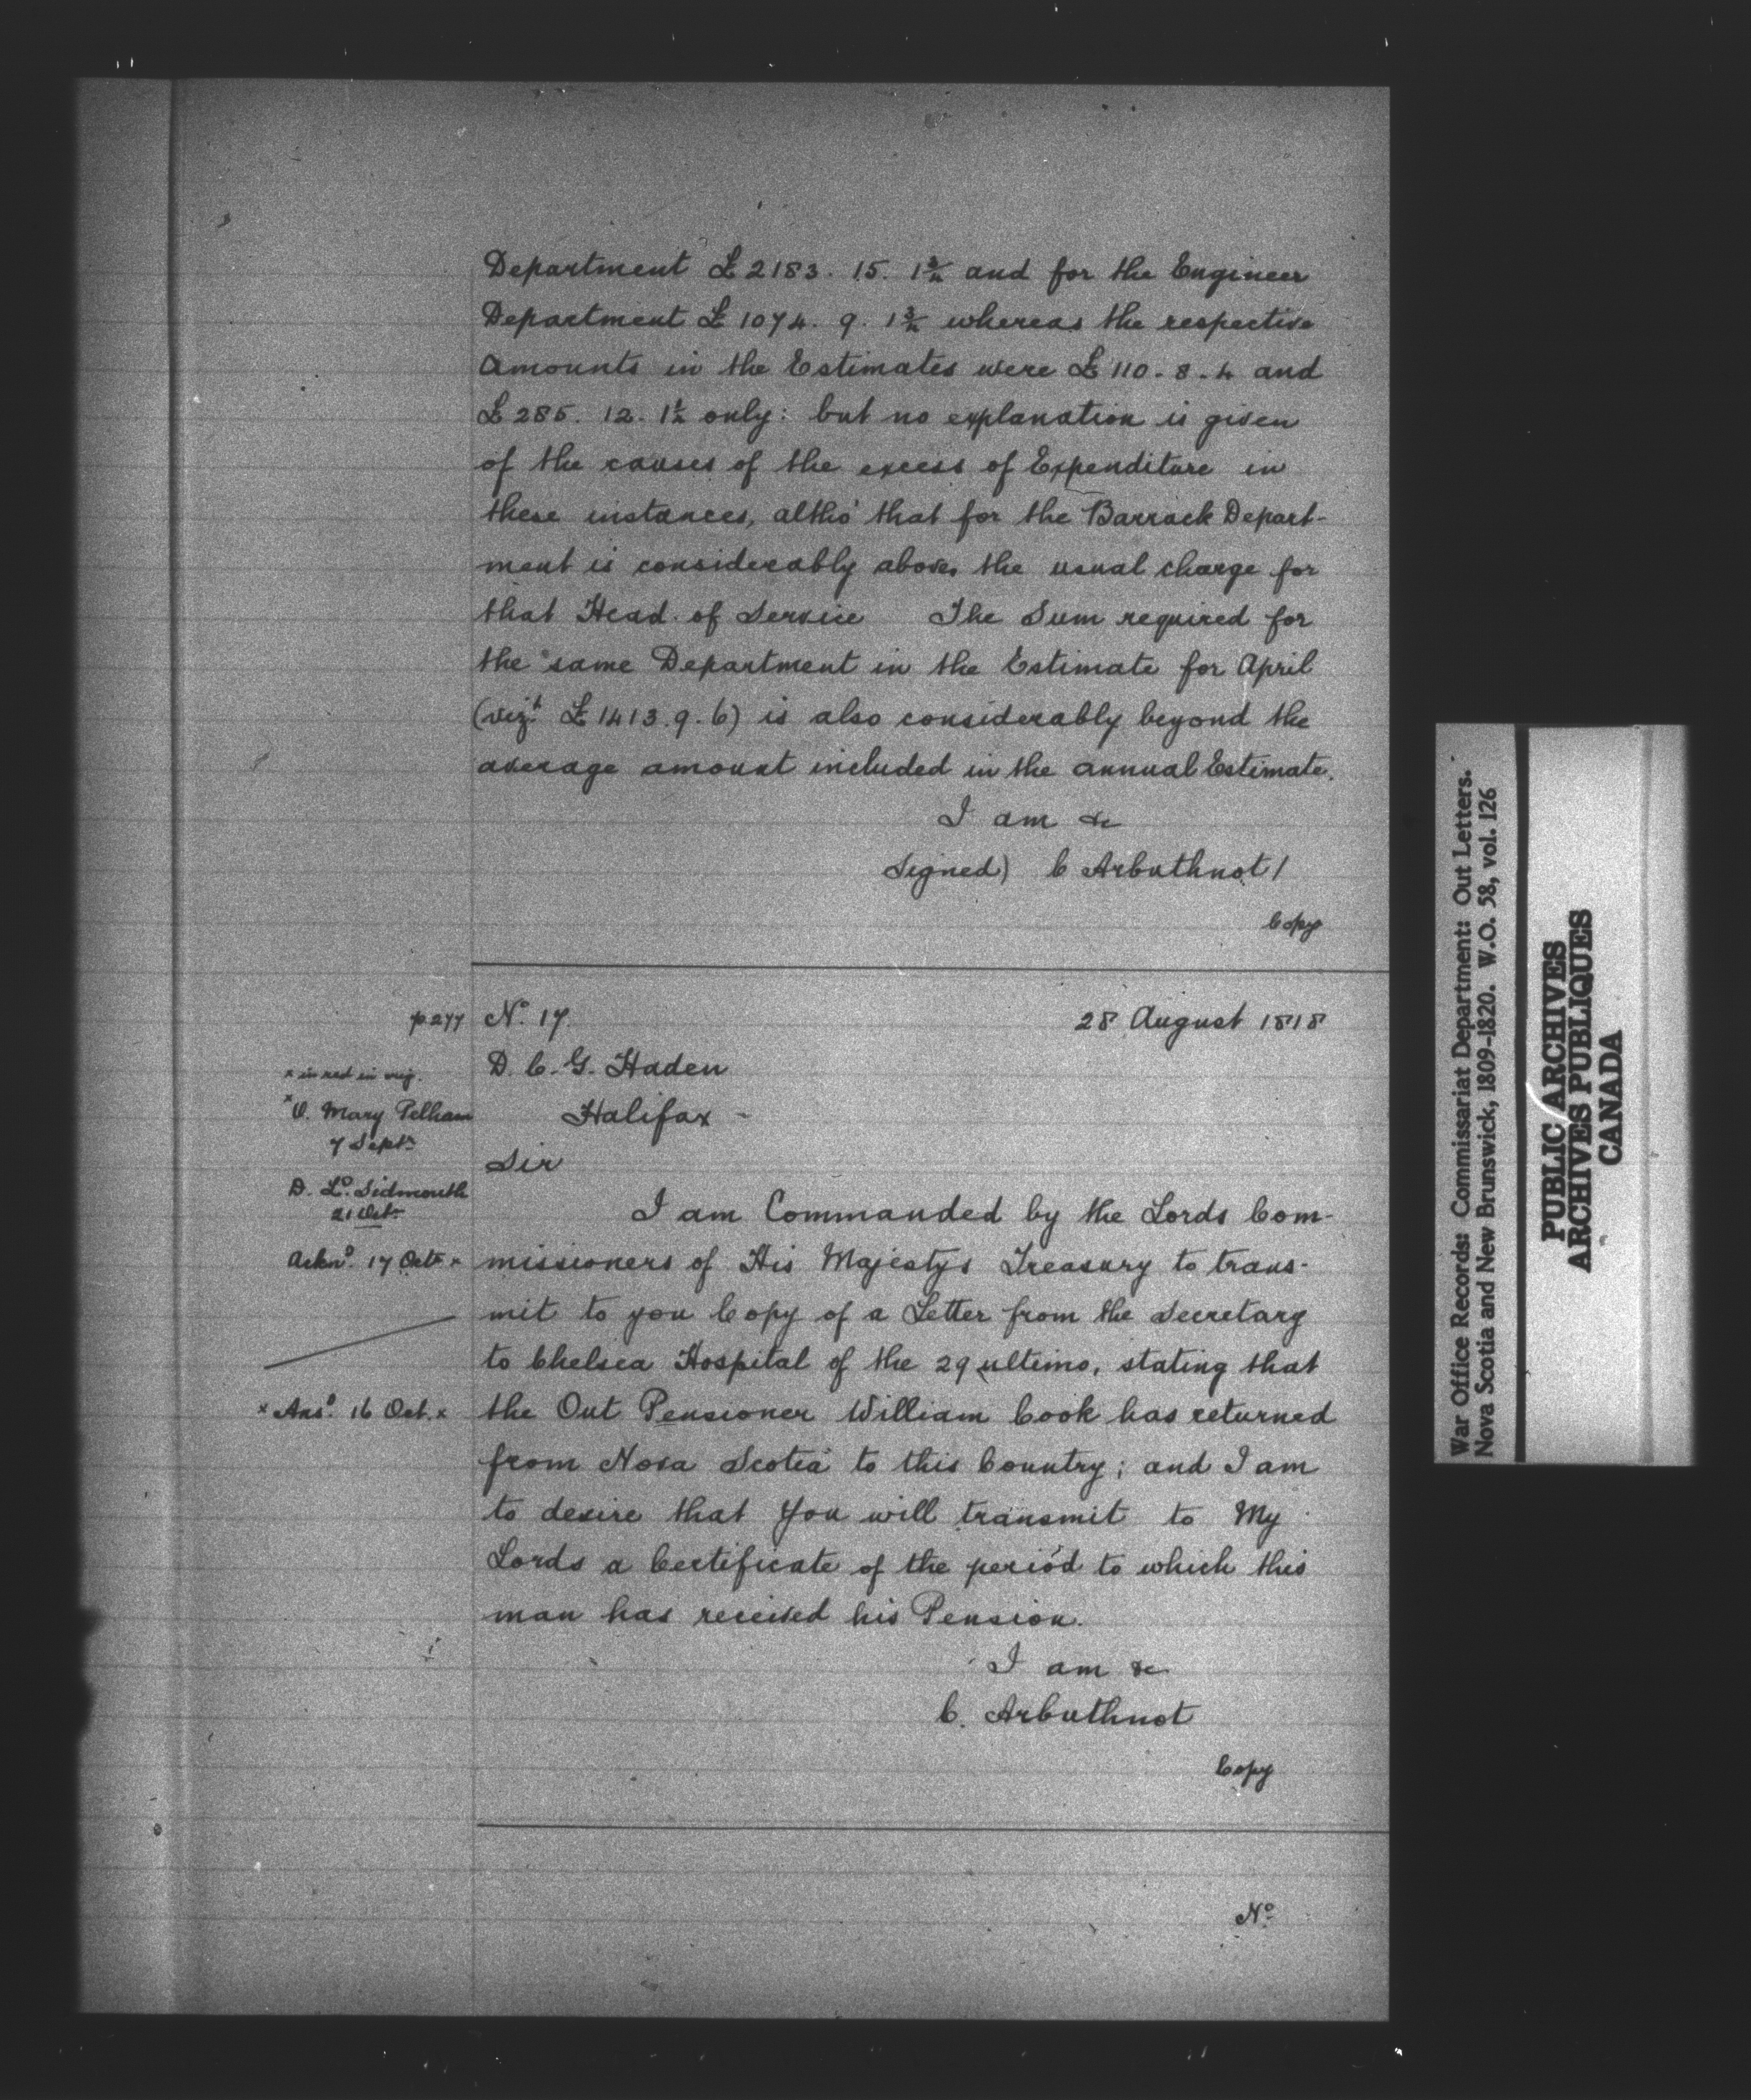 Department £ 2183. 15. 1¾ and for the Engineer
Department £ 1074. 9. 1¾ whereas the respective
Amounts in the Estimates were £ 110-8-4 and
£ 285. 12. 1½ only: but no explanation is given
of the causes of the excess of Expenditure in
these instances, altho' that for the Barrack Depart-
ment is considerably above the usual charge for
that Head of Service The Sum required for
the same Department in the Estimate for April
(vizt £ 1413.9.6) is also considerably beyond the
average amount included in the annual Estimate.
I am &c
Signed) C Arbuthnot /
Copy
p 277 No. 17. 28 August 1818
D. C. G. Haden
Halifax -
Sir
I am Commanded by the Lords Com-
missioners of His Majestys Treasury to trans-
mit to you Copy of a Letter from the Secretary
to Chelsea Hospital of the 29 ultimo, stating that
the Out Pensioner William Cook has returned
from Nova Scotia to this Country; and I am
to desire that You will transmit to My
Lords a Certificate of the period to which this
man has received his Pension.
I am &c
C. Arbuthnot
Copy
No
x in red in orig.
x O. Mary Pelham
7 Septr
D. Ld. Sidmouth
21 Octr
Acknd. 17 Octr x
x Ansd. 16 Oct. x
War Office Records: Commissariat Department: Out Letters.
Nova Scotia and New Brunswick, 1809-1820. W.O. 58, vol. 126
PUBLIC ARCHIVES
ARCHIVES PUBLIQUES
CANADA